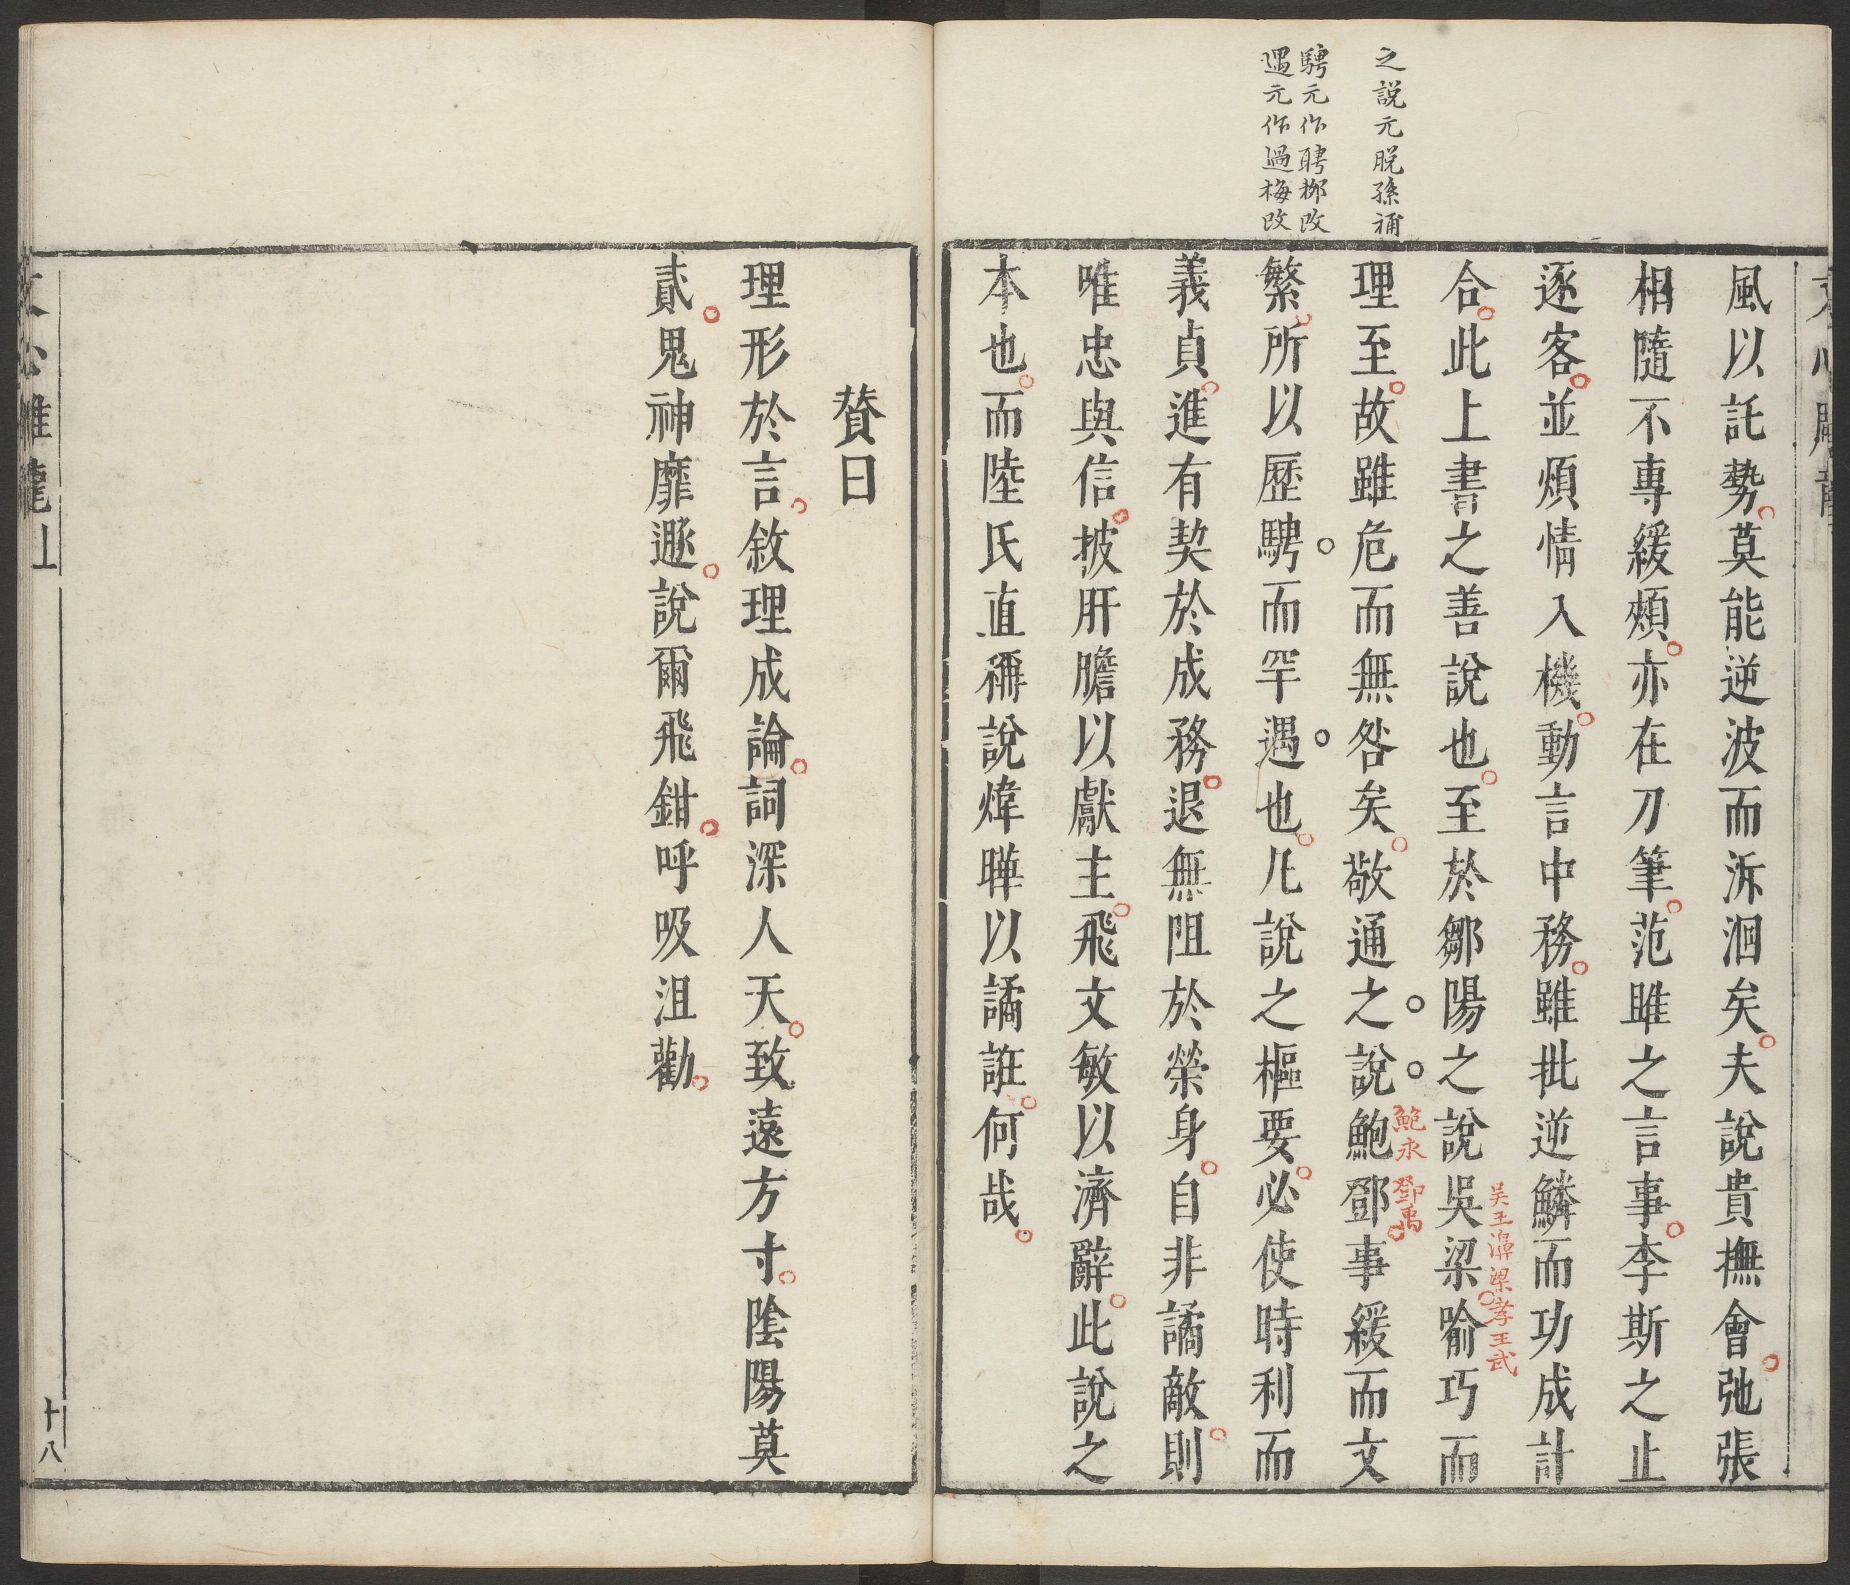 之說元脫孫補
騁元作聘栁改
遇元作過梅改
風以託勢莫能逆波而泝洄矣夫說貴撫會弛張
相隨不專緩頰亦在刀筆范雎之言事李斯之止
逐客並煩情入機動言中務雖批逆鱗而功成計
合此上書之善說也至於鄒陽之說吳梁喻巧而
吴王濞梁孝王武
理至故雖危而無咎矣敬通之說鮑鄧事緩而文
鮑永鄧禹
繁所以歷騁而罕遇也凡說之樞要必使時利而
義貞進有契於成務退無阻於榮身自非譎敵則
唯忠與信披肝膽以獻主飛文敏以濟辭此說之
本也而陸氏直稱說煒曄以譎誑何哉
贊曰
理形於言敘理成論詞深人天致遠方寸陰陽莫
貳鬼神靡遯說爾飛鉗呼吸沮勸
十八